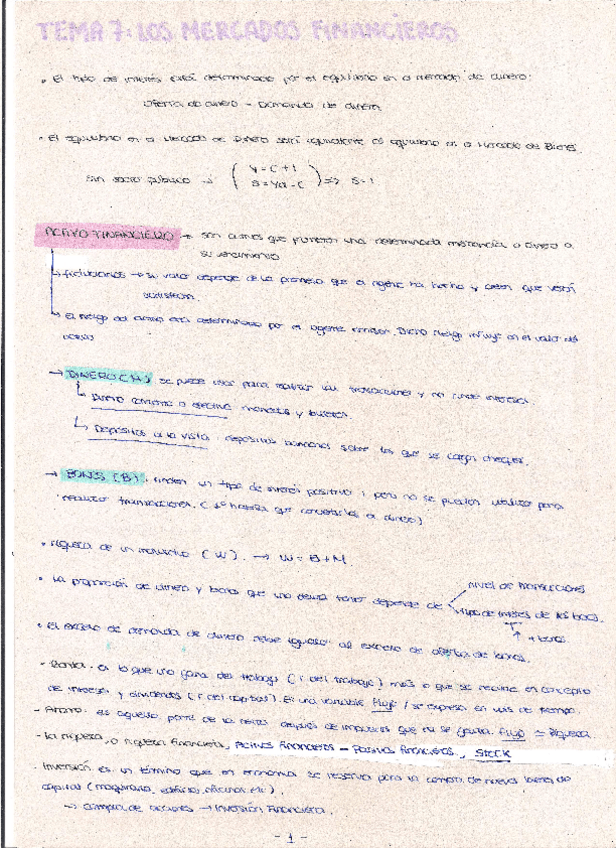 TEMA 7: LOS MERCADOS FINANCIEROS
• El tipo de interés está determinado por el equilibrio en el mercado de dinero:
Oferta de dinero = Demanda de dinero
• El equilibrio en el Mercado de Dinero será equivalente al equilibrio en el Mercado de Bienes.
Sin sector público → ( Y = C + I
S = Yd - C ) => S = I
ACTIVO FINANCIERO → son activos que prometen una determinada mercancía o dinero a
su vencimiento
↳ fiduciarios → su valor depende de la promesa que el agente ha hecho y creen que verán
satisfecha.
↳ El riesgo del activo está determinado por el agente emisor. Dicho riesgo influye en el valor del
activo
→ DINERO (M): se puede usar para realizar las transacciones y no rinde intereses.
↳ Dinero corriente o efectivo: monedas y billetes.
↳ Depósitos a la vista: depósitos bancarios sobre los que se cargan cheques.
→ BONOS (B): rinden un tipo de interés positivo i pero no se pueden utilizar para
realizar transacciones. ( habría que convertirlos a dinero)
• Riqueza de un individuo (W). → W = B + M
NIVEL DE TRANSACCIONES
• La proporción de dinero y bonos que uno desea tener depende de
Tipo de interés de los bonos.
↑ + bonos.
• El exceso de demanda de dinero debe igualar al exceso de oferta de bonos.
- Renta: es lo que uno gana del trabajo (r. del trabajo) más lo que se recibe en concepto
de intereses y dividendos (r. del capital). Es una variable flujo / se expresa en uds de tiempo.
- Ahorro: es aquella parte de la renta después de impuestos que no se gasta. Flujo ≠ Riqueza.
- La riqueza, o riqueza financiera, Activos financieros - Pasivos financieros, STOCK
- Inversión es un término que en economía se reserva para la compra de nuevos bienes de
capital (maquinaria, edificios, oficinas etc).
→ compra de acciones → Inversión Financiera.
- 1 -